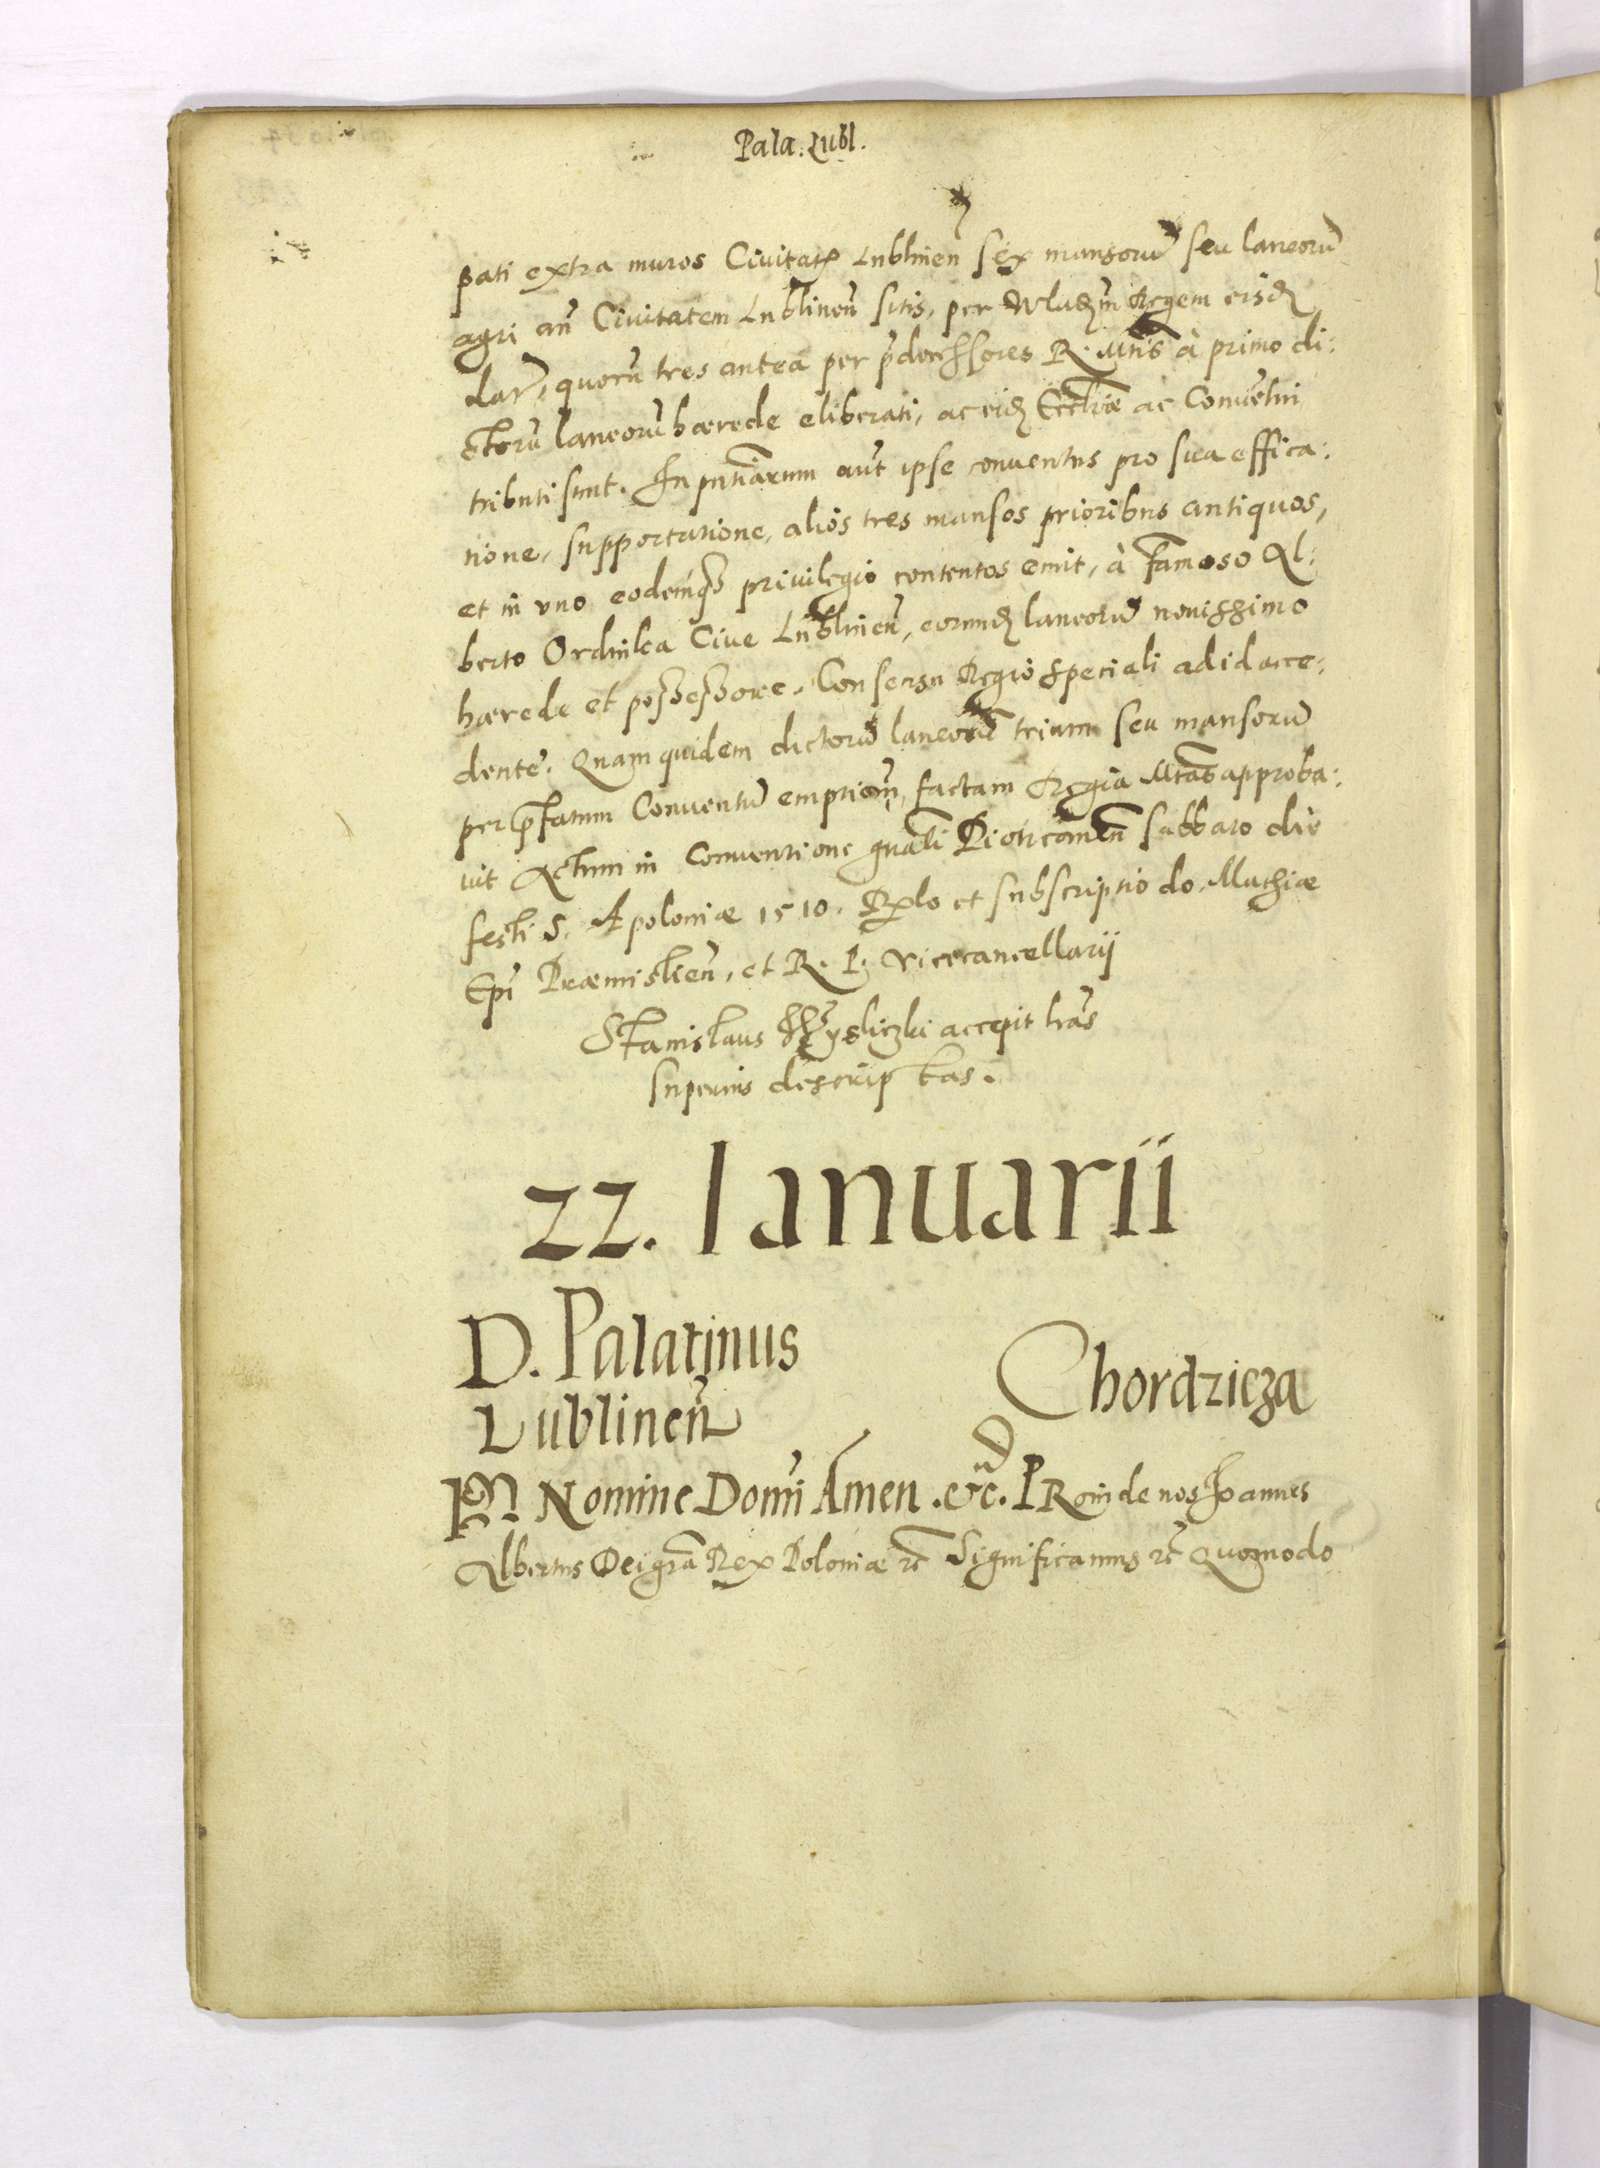 Pala. Lubl.
pati extra muros Civitatis Lublineñ sex mansorũ seu laneorũ
agri añ Civitatem Lublineñ sitis, per Wladm̃ Regem eisd
dar, quorũ tres antea per p̃decessores R. Mtis à primo di:
ctorũ laneorũ hærede eliberati, ac eid Eccl̃iæ ac Convẽtui
tributi sunt. In pñtiarum aũt ipse conventus pro sua effica:
tione, supportatione, alios tres mansos prioribus antiquos,
et in vno eodemq3 privilegio contentos emit, à Famoso Al:
berto Ordnilka Cive Lublineñ, eorumd laneorũ novissimo
hærede et possessore. Consensu Regio speciali ad id acce:
dente. Quam quidem dictorũ laneorũ trium seu mansorũ
per p̃fatum Conventũ emptiom̃, factam Regia Mtas approba:
vit Actum in Conventione gñali Pioticomieñ sabbato die
festi S. Apoloniæ 1510. Rẽlo et subscriptio do. Mathiæ
Epĩ Præmislieñ, et R. P. vicecancellarij
Stanislaus Wysliczki accepit lr̃as
superius descriptas.
22. Ianuarii
D. Palatinus
Lublineñ
Chordzicza
IN Nomine Domĩ Amen. &c. PRoinde nos Joannes
Albertus Dei gr̃a Rex Poloniæ &c Significamus &c Quomodo